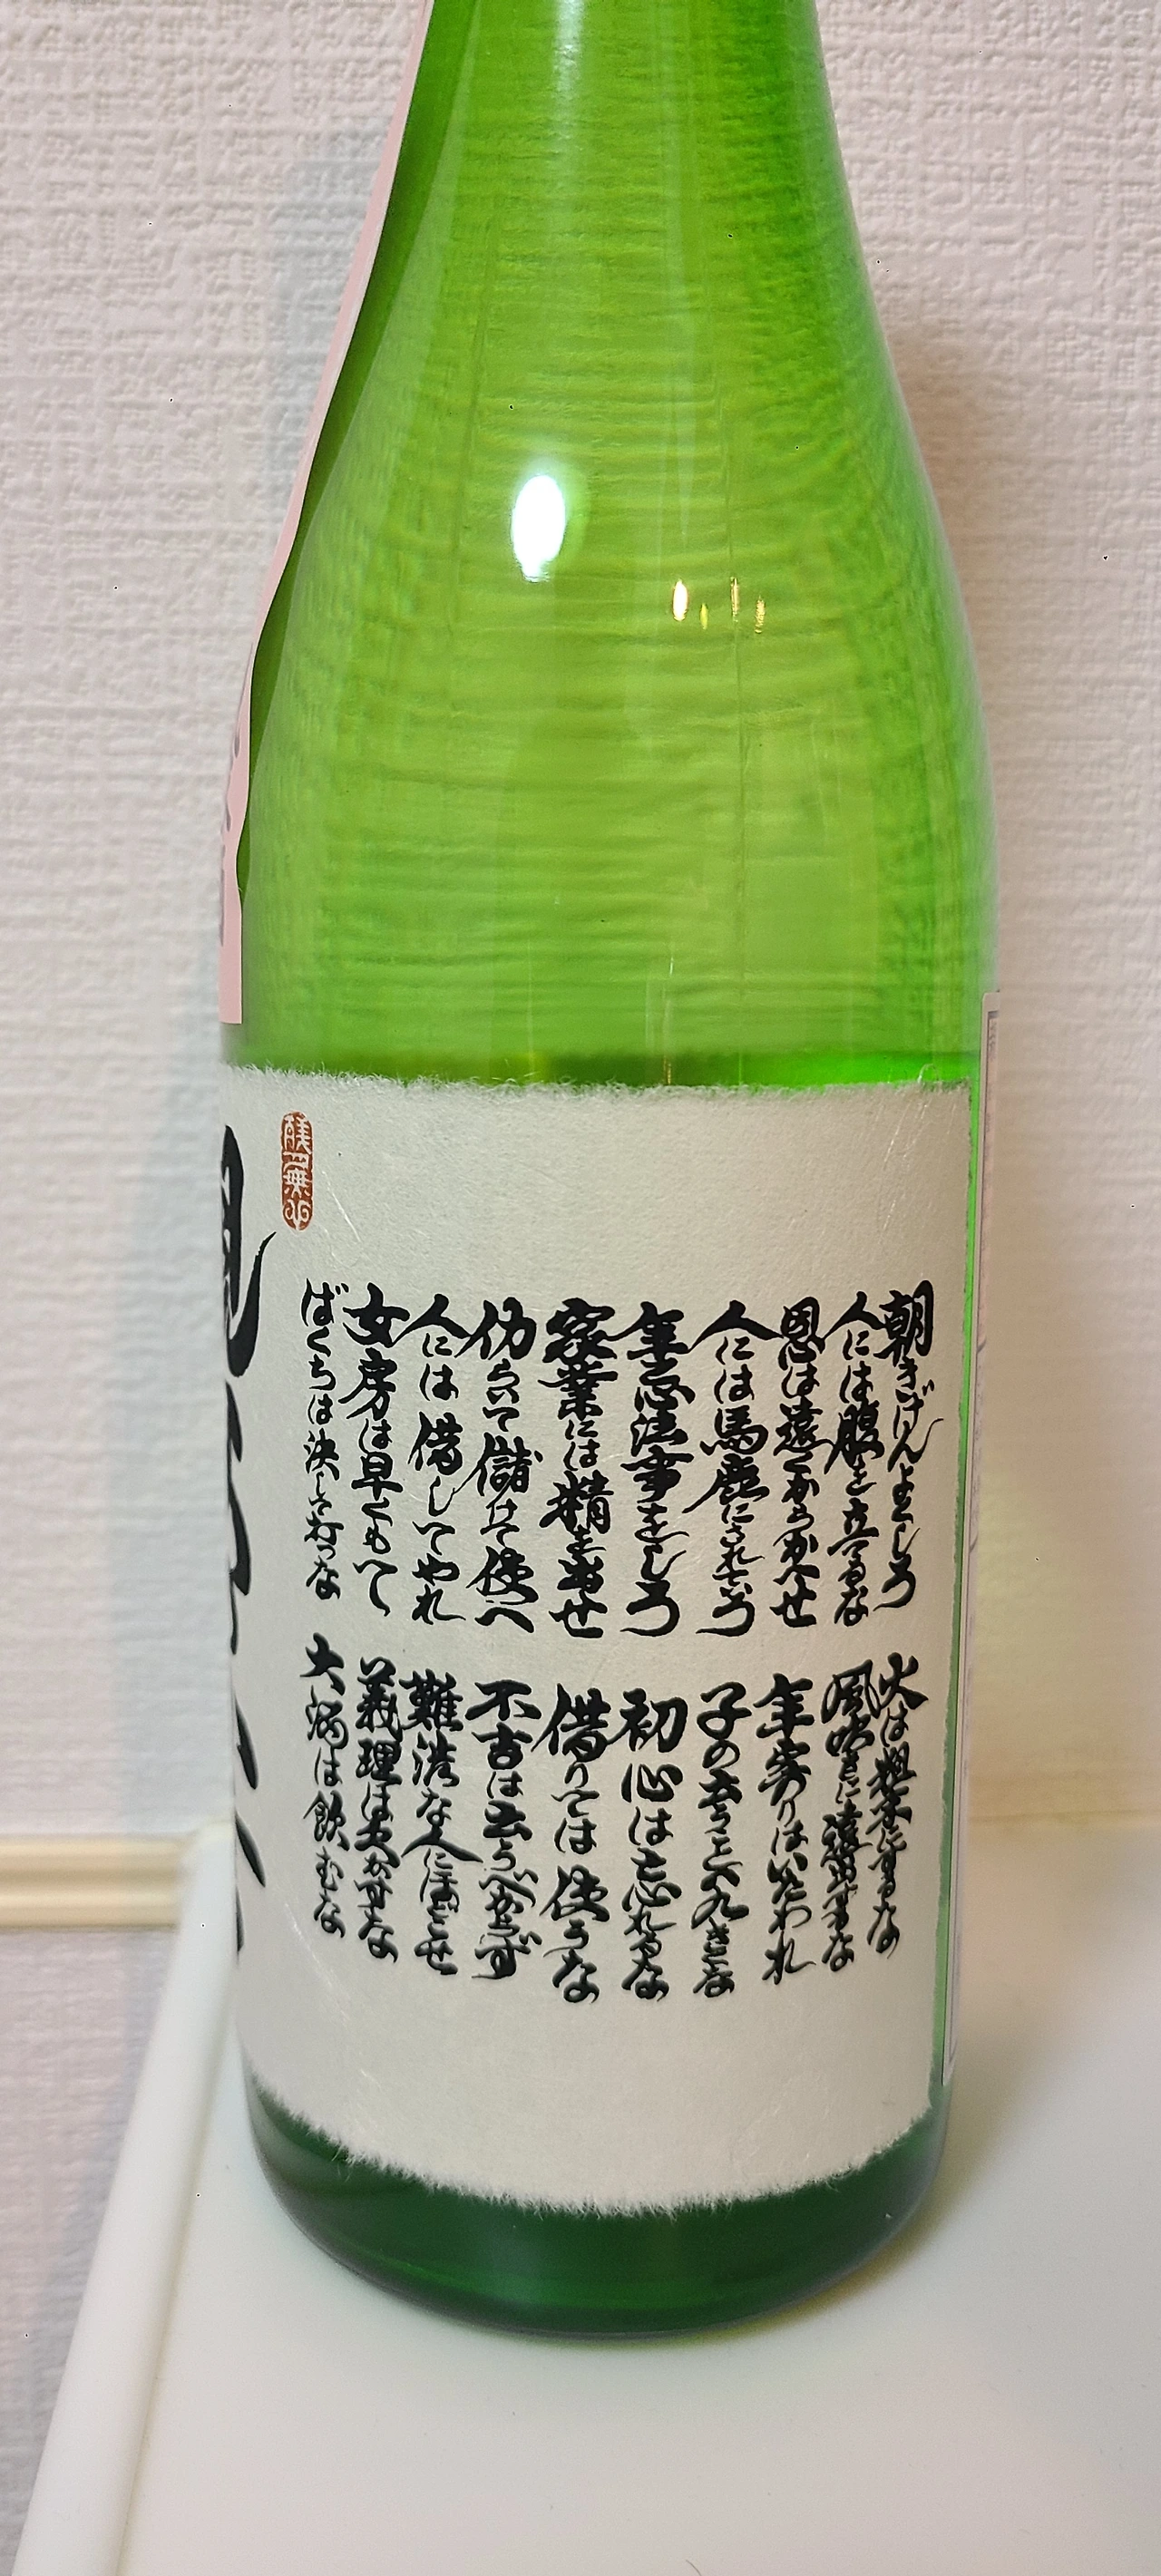 朝きげんよくしろ
人には腹を立てるな
恩は遠くからかへせ
人には馬鹿にされていろ
年忌法事をしろ
家業には精を出せ
働いて儲けて使へ
人には借してやれ
女房は早くもて
ばくちは決して打つな
火は粗末にするな
風吹きに遠出するな
年寄りはいたわれ
子の云うこと八九きくな
初心は忘れるな
借りては使うな
不吉は云うべからず
難渋な人にほどこせ
義理は欠かすな
大酒は飲むな